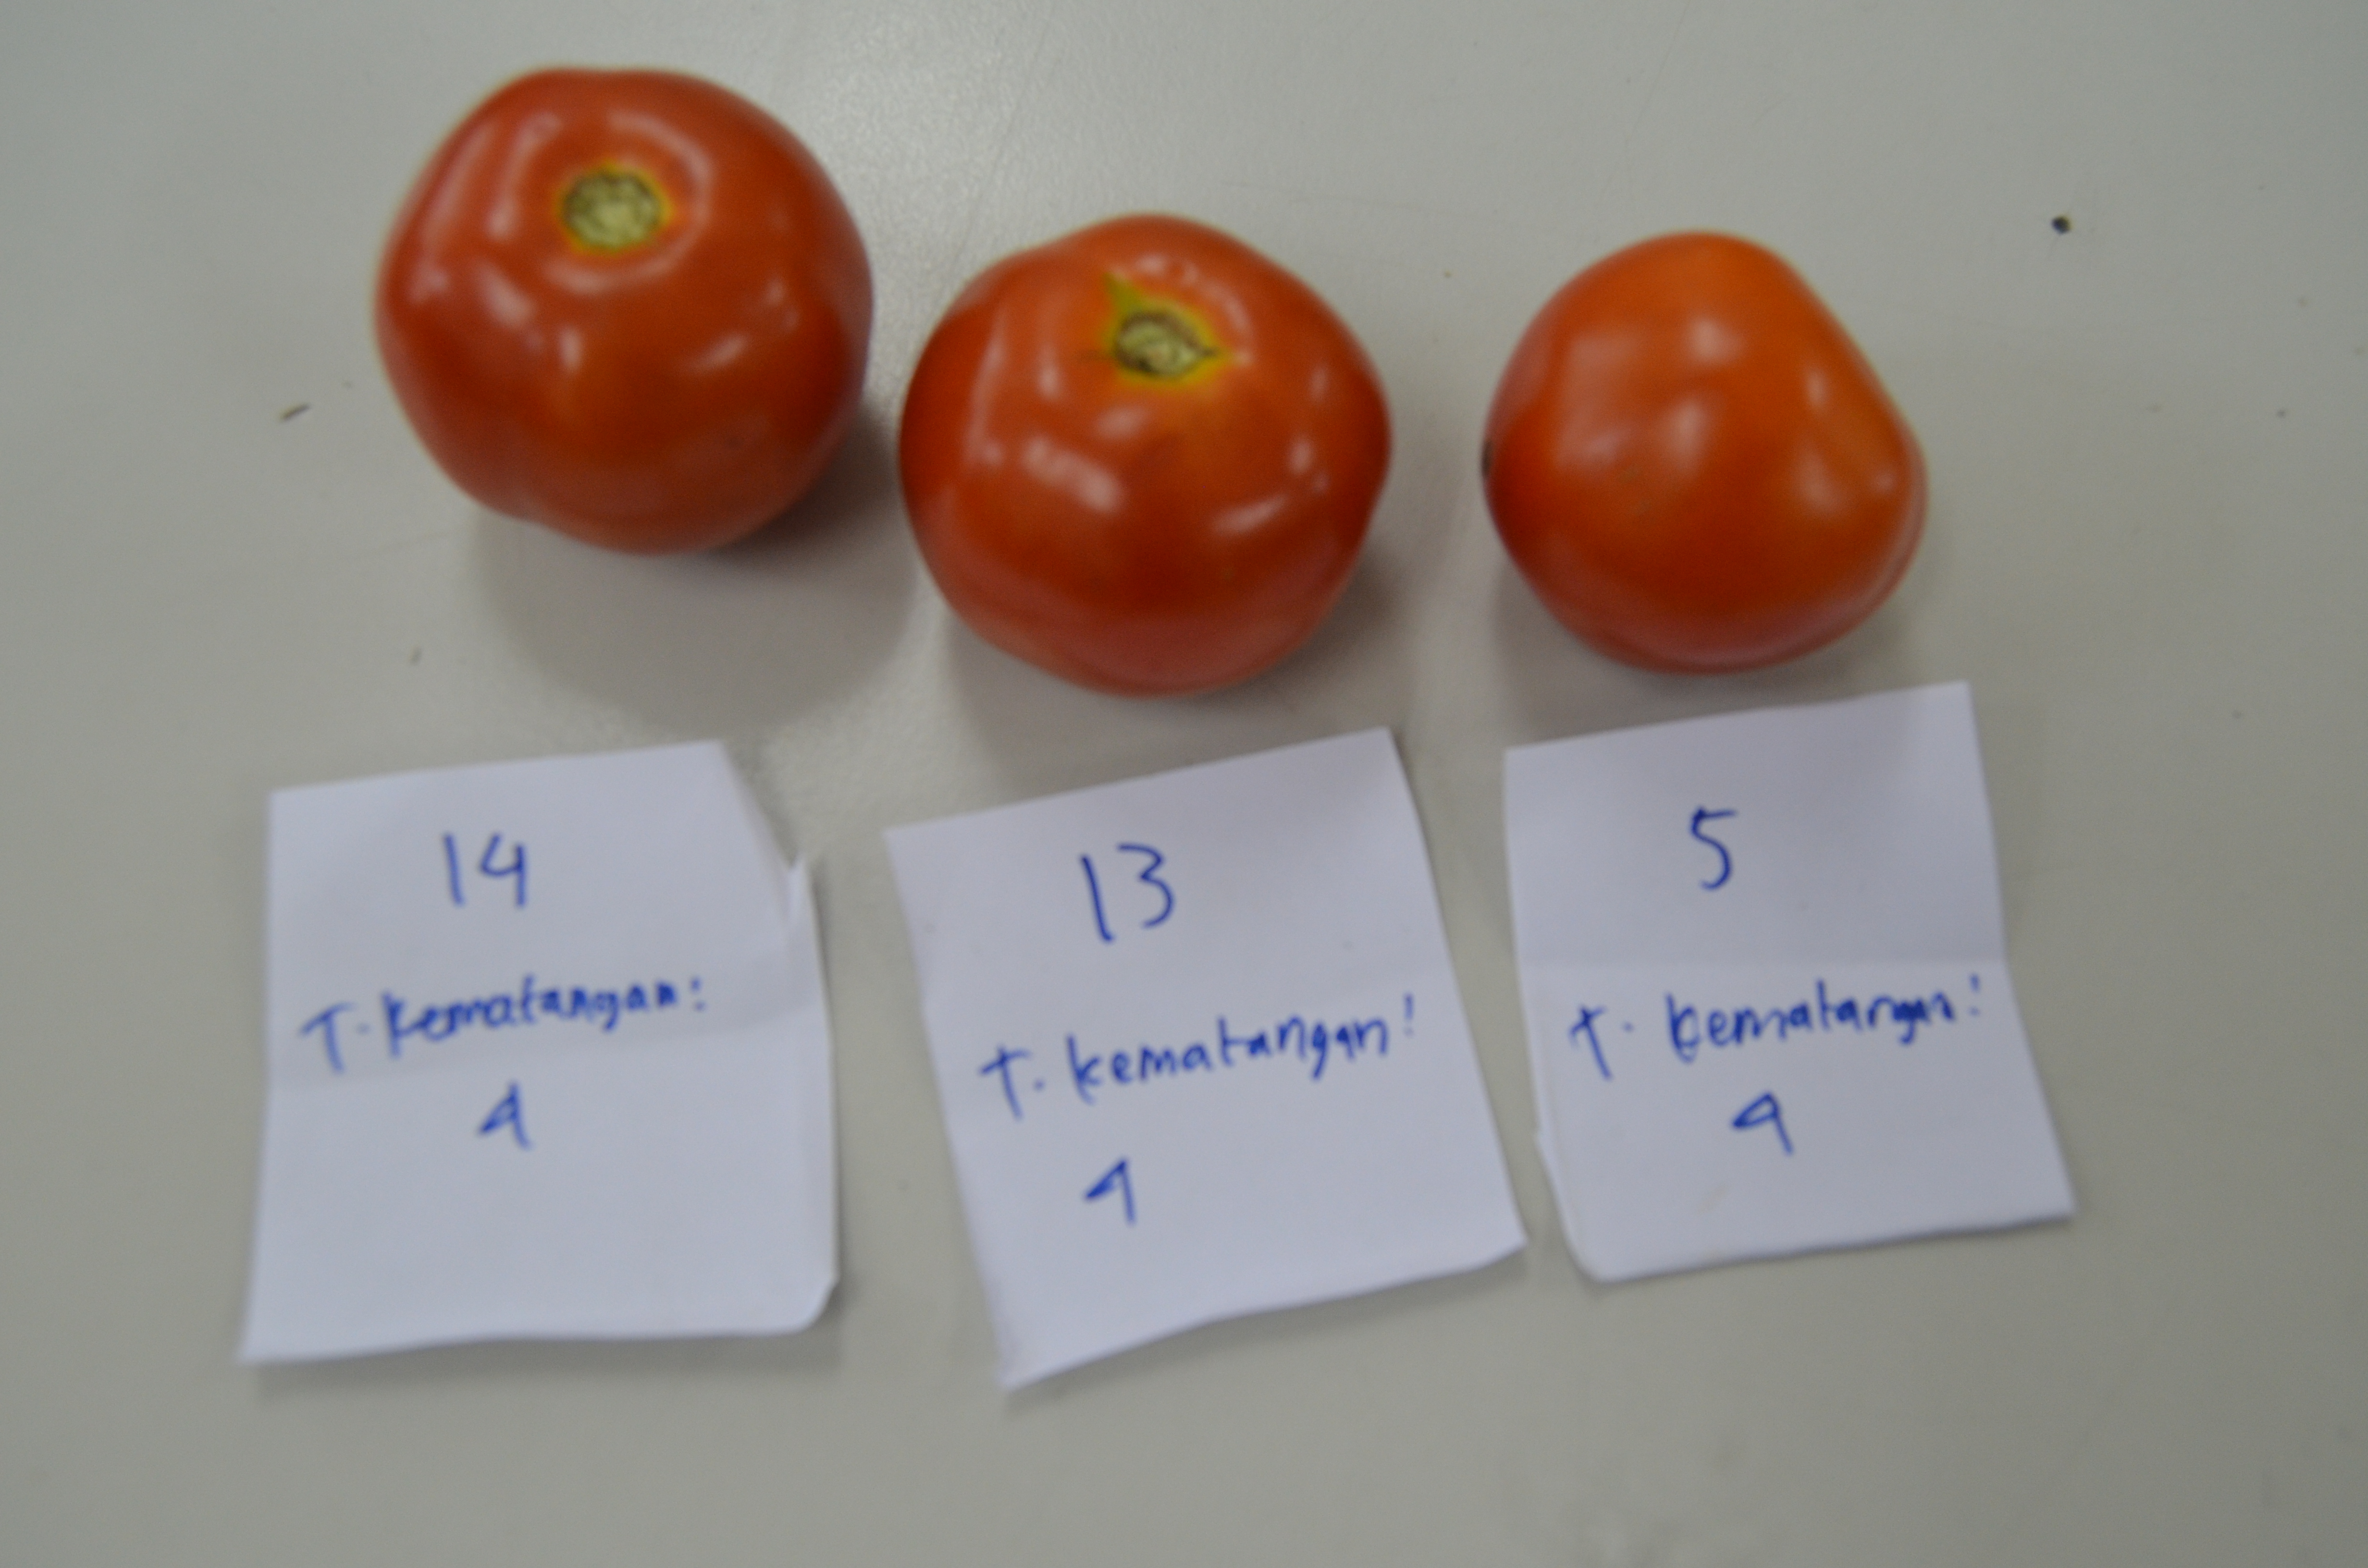 14
T. Kematangan:
4
13
T. kematangan:
4
5
T. kematangan:
4